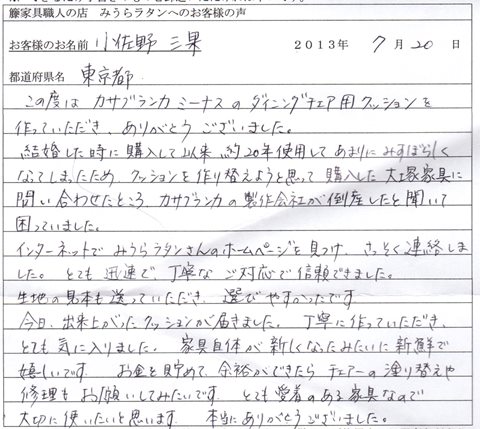 籐家具職人の店　みうらラタンへのお客様の声
お客様のお名前 小佐野 三果 2013年 7月 20日
都道府県名 東京都
この度は カサブランカ ミーナスの ダイニングチェア用クッションを
作っていただき、ありがとうございました。
結婚した時に購入して以来 約20年使用して あまりに みすぼらしく
なってしまったため、クッションを作り替えようと思って 購入した 大塚家具に
問い合わせたところ、カサブランカの製作会社が倒産したと聞いて
困っていました。
インターネットで みうらラタンさんのホームページを見つけ、さっそく連絡しま
した。とても 迅速で、丁寧な ご対応で信頼できました。
生地の見本も送っていただき、選びやすかったです
今日、出来上がったクッションが届きました。丁寧に作っていただき、
とても 気に入りました。家具自体が 新しくなったみたいに 新鮮で
嬉しいです　お金を貯めて、余裕ができたら チェアーの塗り替えや
修理も お願いしてみたいです　とても愛着のある家具なので
大切に使いたいと思います　本当にありがとうございました。